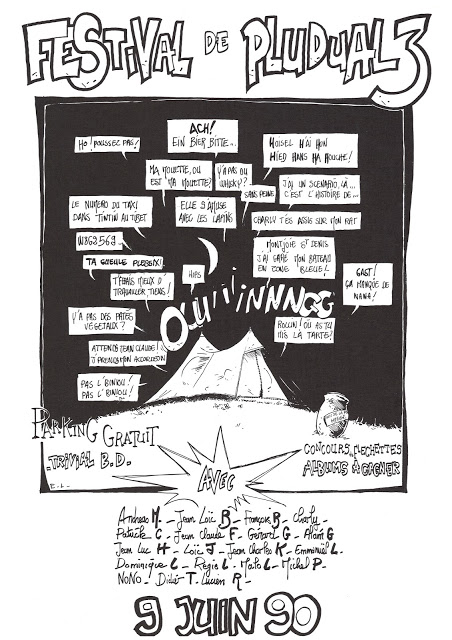 FESTIVAL DE PLUDUAL 3
HO! POUSSEZ PAS!
ACH!
EIN BIER BITTE...
MOISEL M'AI MON
MIED HANS MA MOUCHE!
MA MOUETTE, OU
EST MA MOUETTE?
Y'A PAS DU
WHISKY?
SANS PEINE
J'AI UN SCENARIO, LÀ...
C'EST L'HISTOIRE DE...
LE NUMERO DU TAXI
DANS TINTIN AU TIBET
ELLE S'AMUSE
AVEC LES LAPINS
CHARLY T'ES ASSIS SUR MON RAT
W869569...
MONTJOIE ST DENIS
J'AI GARÉ MON BATEAU
EN ZONE BLEUE!
TA GUEULE PLEBEIX!
HIPS
T'FERAIS MIEUX D'
TRAVAILLER TIENS!
GAST!
ÇA MANQUE DE
NANA!
OUUIIINNNGG
Y'A PAS DES PATES
VEGETAUX?
ROLLIN! OÙ AS TU
MIS LA TARTE!
ATTENDS JEAN CLAUDE!
J'PRENDS MON ACCORDEON
PAS L'BINIOU!
PAS L'BINIOU!
PARKING GRATUIT
-TRIVIAL B.D.
CONCOURS FLECHETTES
ALBUMS À GAGNER
E.L.
AVEC
Andreas M. _ Jean Loïc B _ François B _ Charly _
Patrick C _ Jean Claude F _ Gérard G _ Alain G _
Jean Luc H _ Loïc J _ Jean Charles K _ Emmanuel L _
Dominique L _ Régis L _ Malo L _ Michel P _
NONO _ Didier T _ Lucien R _
9 JUIN 90